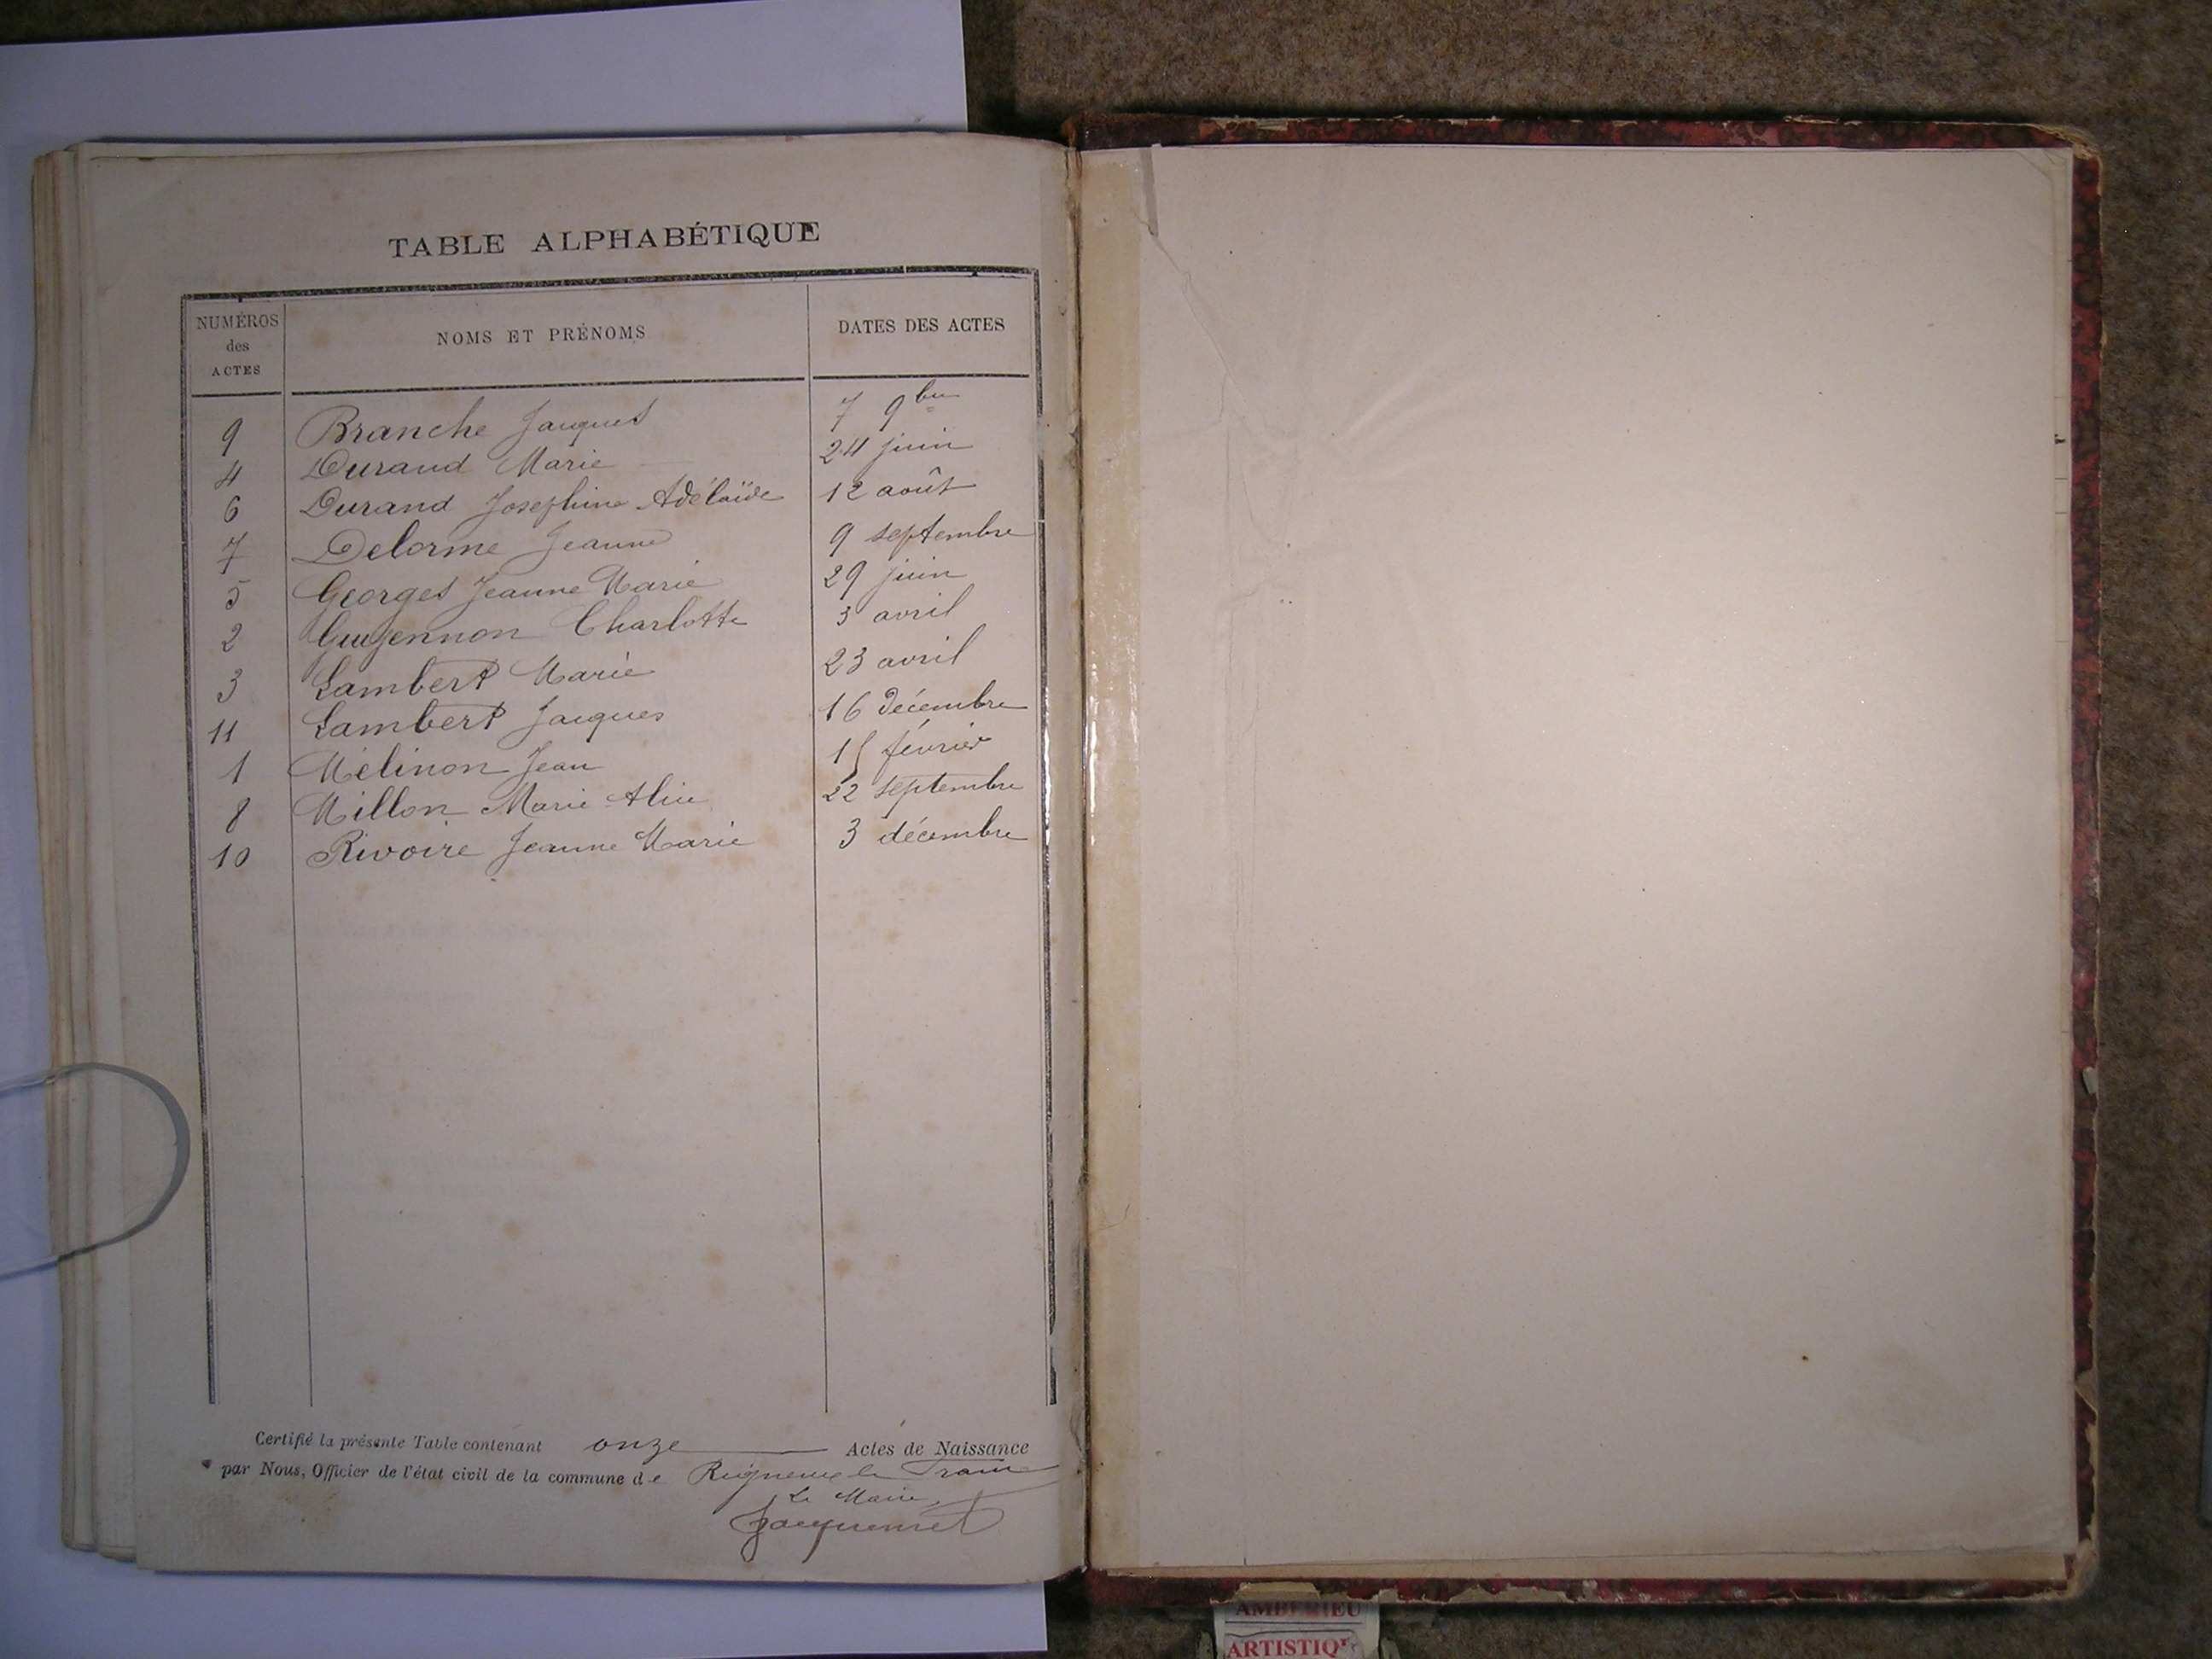 TABLE ALPHABÉTIQUE
NUMÉROS des ACTES NOMS ET PRÉNOMS DATES DES ACTES
9 Branche Jacques 7 9bre
4 Durand Marie 24 juin
6 Durand Josephine Adélaïde 12 août
7 Delorme Jeanne 9 septembre
5 Georges Jeanne Marie 29 juin
2 Guyennon Charlotte 3 avril
3 Lambert Marie 23 avril
11 Lambert Jacques 16 décembre
1 Mélinon Jean 15 février
8 Millon Marie Aline 22 septembre
10 Rivoire Jeanne Marie 3 décembre
Certifié la présente Table contenant onze Actes de Naissance
par Nous, Officier de l'état civil de la commune de Rigneux le Franc
Le Maire,
Jacquemet
AMBERIEU
ARTISTIQ